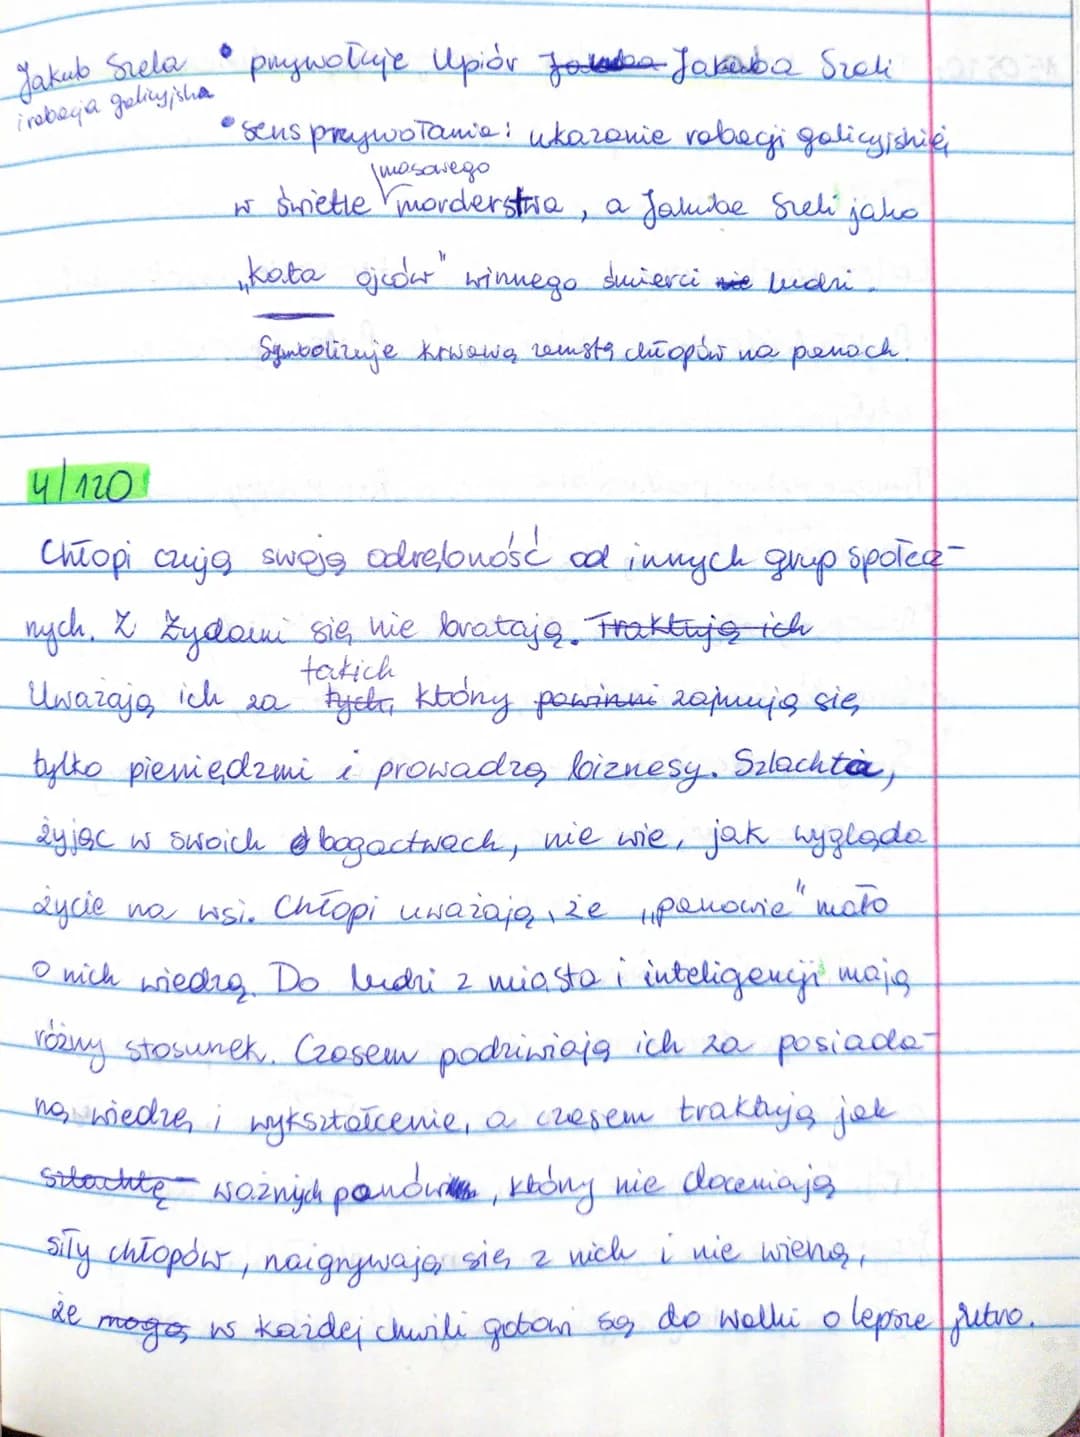 Jakub Szela i rabacja galicyjska
• przywołuje Upiór Jakuba Szeli
• sens przywołania: ukazanie rabacji galicyjskiej
w świetle masowego morderstwa, a Jakuba Szeli jako
„kata ojców" winnego śmierci ludzi.
Symbolizuje krwawą zemstę chłopów na panach.
4/120
Chłopi czują swoją odrębność od innych grup społecz-
nych. Z Żydami się nie bratają. Traktują ich
Uważają ich za takich, którzy powinni zajmują się
tylko pieniędzmi i prowadzą biznesy. Szlachta,
żyjąc w swoich bogactwach, nie wie, jak wygląda
życie na wsi. Chłopi uważają, że „panowie" mało
o nich wiedzą. Do ludzi z miasta i inteligencji mają
różny stosunek. Czasem podziwiają ich za posiada-
ną wiedzę i wykształcenie, a czasem traktują jak
szlachtę ważnych panów, którzy nie doceniają
siły chłopów, naigrywają się z nich i nie wierzą,
że mogą w każdej chwili gotowi są do walki o lepsze jutro.